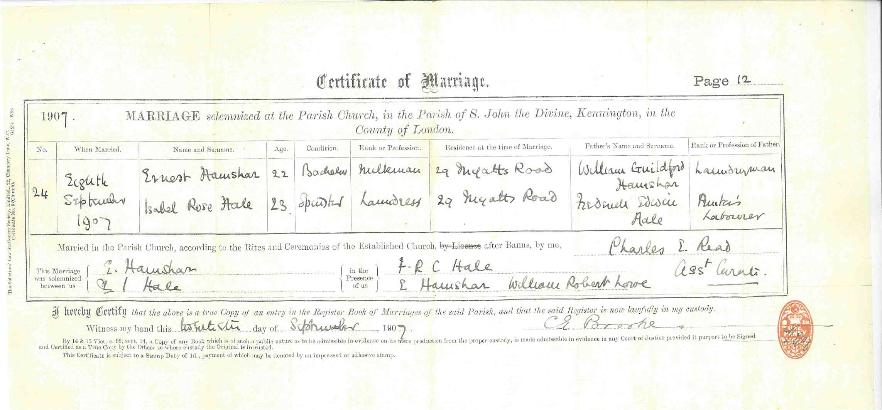 Certificate of Marriage.
Page 12
1907. MARRIAGE solemnized at the Parish Church, in the Parish of S. John the Divine, Kennington, in the
County of London.
No. When Married. Name and Surname. Age. Condition. Rank or Profession. Residence at the time of Marriage. Father's Name and Surname. Rank or Profession of Father.
24 Eighth September 1907
Ernest Hamshar 22 Bachelor Milkman 29 Myatts Road William Guildford Hamshar Laundryman
Isabel Rose Hale 23 Spinster Laundress 29 Myatts Road Frederick Edwin Hale Labourer
Married in the Parish Church, according to the Rites and Ceremonies of the Established Church, by License after Banns, by me,
Charles E. Read
Asst Curate.
This Marriage was solemnized between us
E. Hamshar
I Hale
In the Presence of us
F. R C Hale
E Hamshar William Robert Lowe
I hereby Certify that the above is a true Copy of an entry in the Register Book of Marriages of the said Parish, and that the said Register is now lawfully in my custody.
Witness my hand this day of September 1907
C.E. Brooke
By 14 & 15 Vict. c. 99, sect. 14, a Copy of any Book which is of such a public nature as to be admissible in evidence on its mere production from the proper custody, is made admissible in evidence in any Court of Justice provided it purports to be Signed
and Certified as a True Copy by the Officer to whose custody the Original is intrusted.
This Certificate is subject to a Stamp Duty of 1d., payment of which may be denoted by an impressed or adhesive stamp.